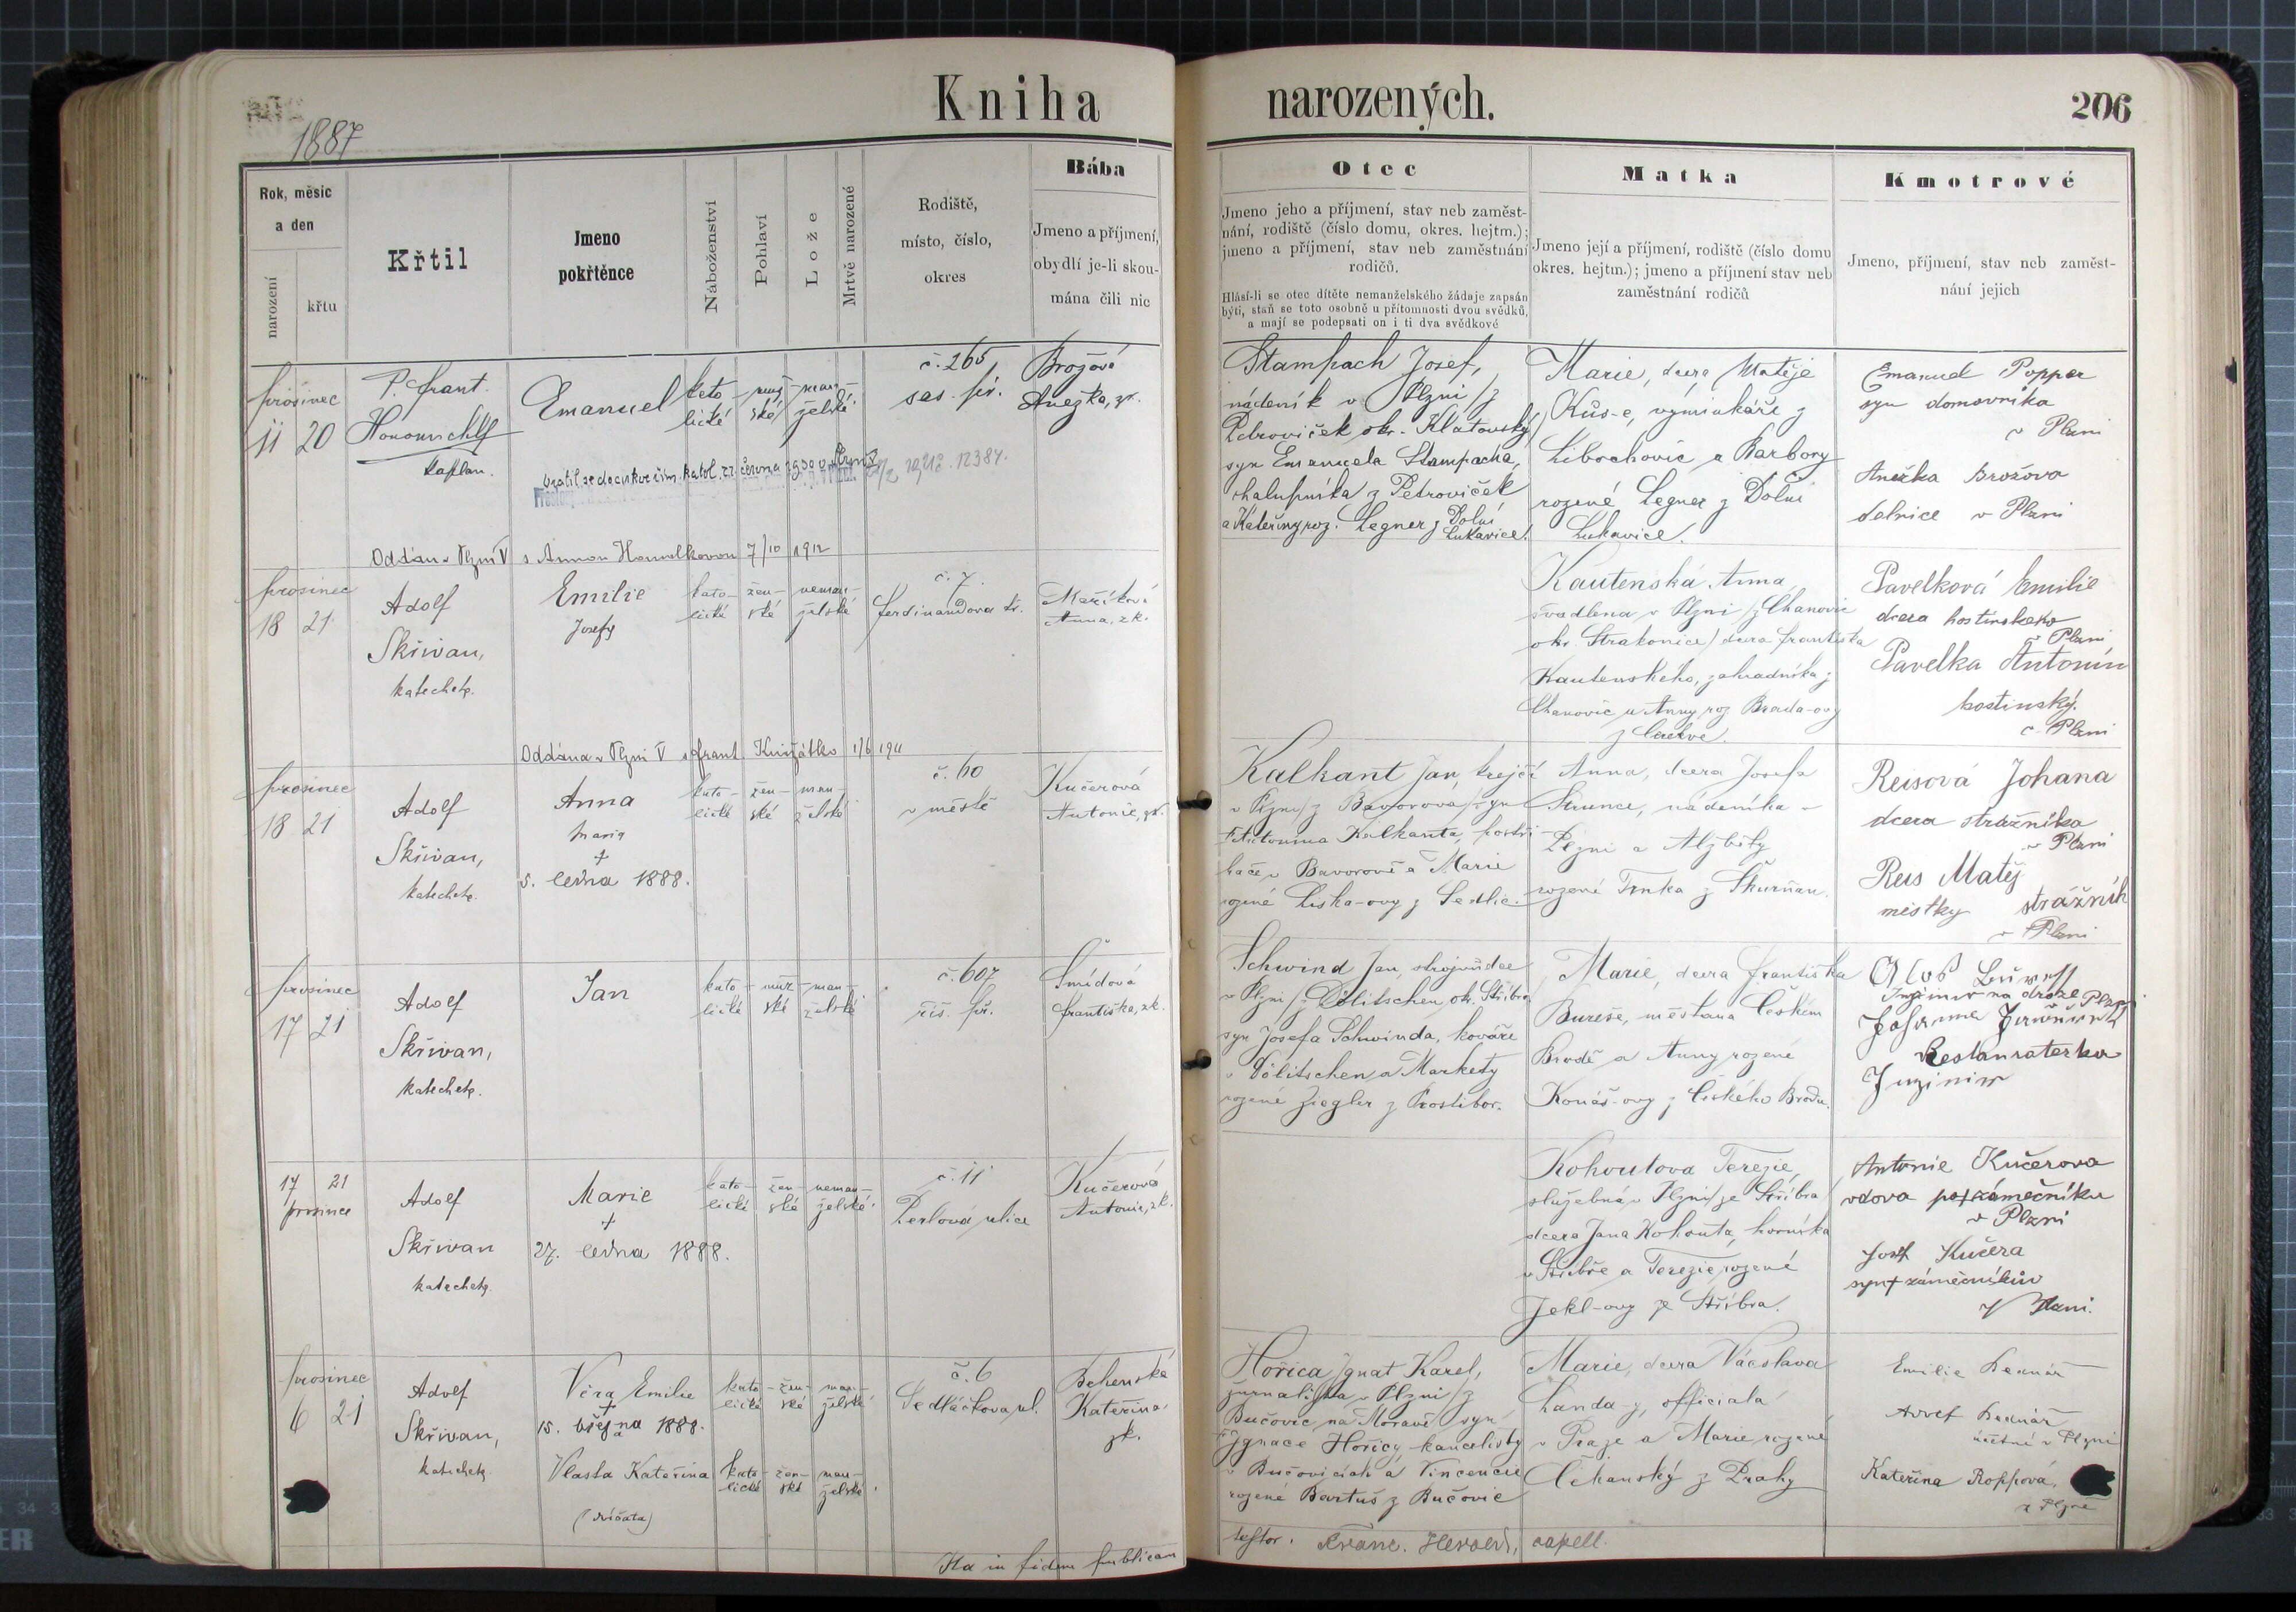 Kniha narozených.
206
1887
Rok, měsíc
a den
narození
křtu
Křtil
Jmeno
pokřtěnce
Náboženství
Pohlaví
Lože
Mrtvě narozené
Rodiště,
místo, číslo,
okres
Bába
Jmeno a příjmení,
obydlí je-li skou-
mána čili nic
Otec
Jmeno jeho a příjmení, stav neb zaměst-
nání, rodiště (číslo domu, okres. hejtm.);
jmeno a příjmení, stav neb zaměstnání
rodičů.
Hlásí-li se otec dítěte nemanželského žádaje zapsán
býti, staň se toto osobně u přítomnosti dvou svědků,
a mají se podepsati on i ti dva svědkové
Matka
Jmeno její a příjmení, rodiště (číslo domu
okres. hejtm.); jmeno a příjmení stav neb
zaměstnání rodičů
Kmotrové
Jmeno, příjmení, stav neb zaměst-
nání jejich
prosinec
11 20
P. Frant.
kaplan.
Emanuel
kato-
lické
muž-
ské
man-
želské
č. 265
sas. př.
Brožová
Anežka, zk.
Stampach Josef,
nádeník v Plzni /z
Petroviček okr. Klatovský/
syn Emanuela Stampacha,
chalupníka z Petroviček
a Kateřiny roz. Legner z Dolní
Lukavice.
Marie, dcera Matěje
Kůs-e, výminkáře z
Libochovic a Barbory
rozené Legner z Dolní
Lukavice.
Emanuel Popper
syn domovníka
v Plzni
Anežka Brožova
delnice v Plzni
Oddán v Plzni V s Annou 7/10 1912
prosinec
18 21
Adolf
Skřivan,
katecheta.
Emilie
Josefa
kato-
lické
žen-
ské
neman-
želské
č. 7.
Ferdinandova tř.
Maříková
Anna, zk.
Kautenská Anna,
švadlena v Plzni /z Chanovic
okr. Strakonice/ dcera Františka
Kautenského, zahradníka z
Chanovic a Anny roz. Brada-ovy
Pavelková Emilie
dcera hostinskeho
v Plzni
Pavelka Antonín
hostinský.
v Plzni
Oddána v Plzni V s Frant. 1/6 1911
prosinec
18 21
Adolf
Skřivan,
katecheta.
Anna
Maria
†
5. ledna 1888.
kato-
lické
žen-
ské
man-
želské
č. 60
v městě
Kučerová
Antonie, zk.
Kalkant Jan, krejčí
v Plzni /z Bavorova/ syn
† Antonina Kalkanta, postři-
hače v Bavorově a Marie
rozené Liska-ovy z Sedlic.
Anna, dcera Josefa
Strunce, nádeníka v
Plzni a Alžběty
rozené Trnka z Škurňan.
Reisová Johana
dcera stražníka
v Plzni
Reis Matěj
městky strážník
v Plzni
prosinec
17 21
Adolf
Skřivan,
katecheta.
Jan
kato-
lické
muž-
ské
man-
želské
č. 607
říš. př.
Šmídová
Františka, zk.
Schwind Jan, strojvůdce
v Plzni /z Dölitschen, okr. Stříbro/
syn Josefa Schwinda, kováře
v Dölitschen a Markety
rozené Ziegler z Prostibor.
Marie, dcera Františka
Bureše, měšťana v Českém
Brodě a Anny rozené
Konáš-ovy z Českého Brodu.
Restauraterka
17 21
prosince
Adolf
Skřivan
katecheta.
Marie
†
27. ledna 1888.
kato-
lické
žen-
ské
neman-
želské.
č. 11
Perlová ulice
Kučerová
Antonie, zk.
Kohoutova Terezie,
služebná v Plzni /ze Stříbra/
dcera Jana Kohouta, horníka
v Stříbře a Terezie rozené
Jekl-ovy ze Stříbra.
Antonie Kučerova
vdova po † zámečníku
v Plzni
Josef Kučera
syn † zámečníkův
v Plzni.
prosinec
6 21
Adolf
Skřivan,
katecheta.
Věra Emilie
†
15. 1888.
kato-
lické
žen-
ské
man-
želské
Vlasta Kateřina
kato-
lické
žen-
ské
man-
želské.
(dvíčata)
č. 6
Sedláčkova ul.
Bchenská
Kateřina,
zk.
Hořica Ignat Karel,
žurnalista v Plzni /z
Bučovic na Moravě/ syn
† Ignace Hořicy kancelisty
v Bučovicích a Vincencie
rozené Bartuš z Bučovic
Marie, dcera Václava
Landa-y, officiala
v Praze a Marie rozené
z Prahy
Emilie Bednář
Adolf Bednář
účetní v Plzni
Kateřina Roppová,
z Plzně
Ita in fidem publicam
testor. Franc. Herold, capell.